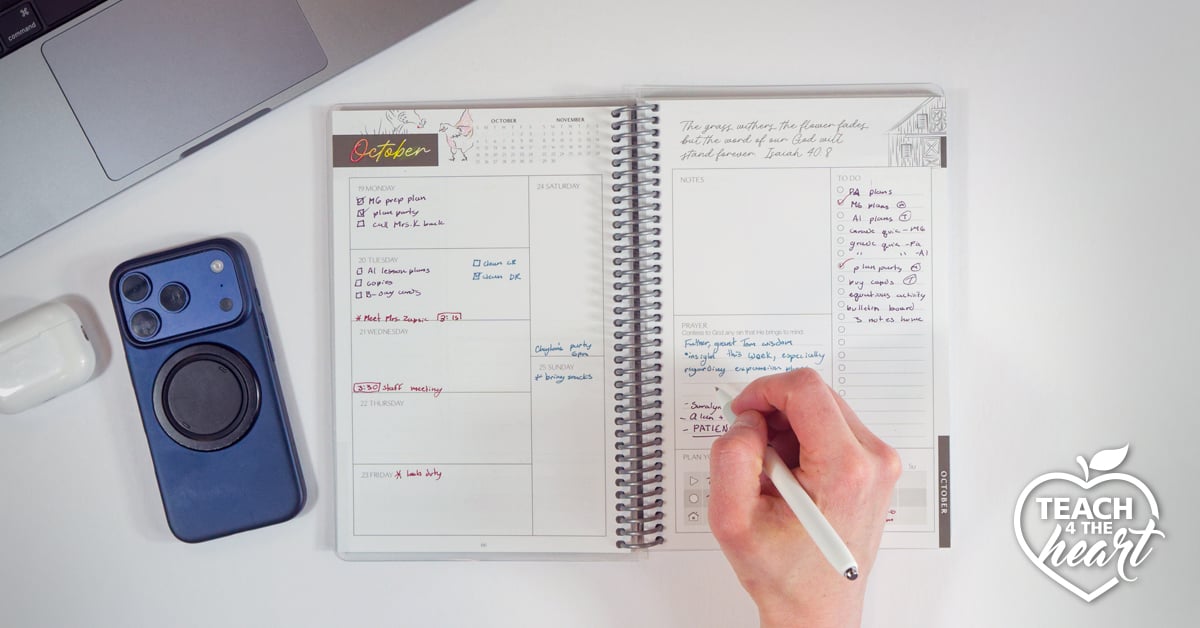 command
October
OCTOBER
NOVEMBER
19 MONDAY
MG prep plan
plan party
call Mrs. K back
20 TUESDAY
AI lesson plans
copies
B-day cards
clean CR
clean DR
* Meet Mrs. Zapsic 3:15
21 WEDNESDAY
3:30 staff meeting
22 THURSDAY
23 FRIDAY * lunch duty
24 SATURDAY
party
6pm
25 SUNDAY
* bring snacks
The grass withers, the flower fades,
but the word of our God will
stand forever. Isaiah 40:8
NOTES
PRAYER
Confess to God any sin that He brings to mind.
Father, grant Tom wisdom
insight this week, especially
regarding expansion
- PATIEN
PLAN YO
TO DO
PA plans
MG plans
AI plans
grade quiz - MG
grade quiz - PA
" " - AI
plan party
buy cards
equations activity
bulletin board
3 notes home
Su
OCTOBER
TEACH
4 THE
heart